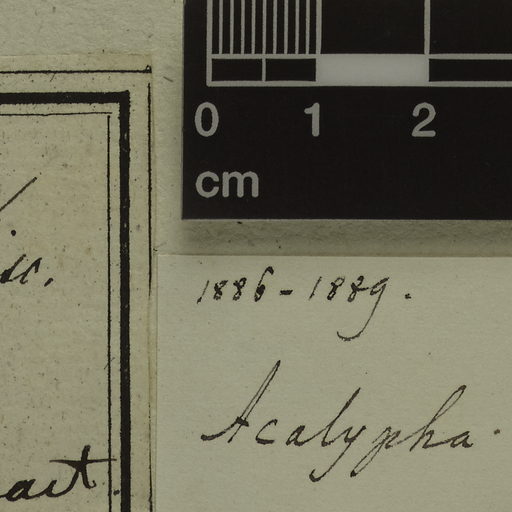 0 1 2
cm
1886-1889.
Acalypha.